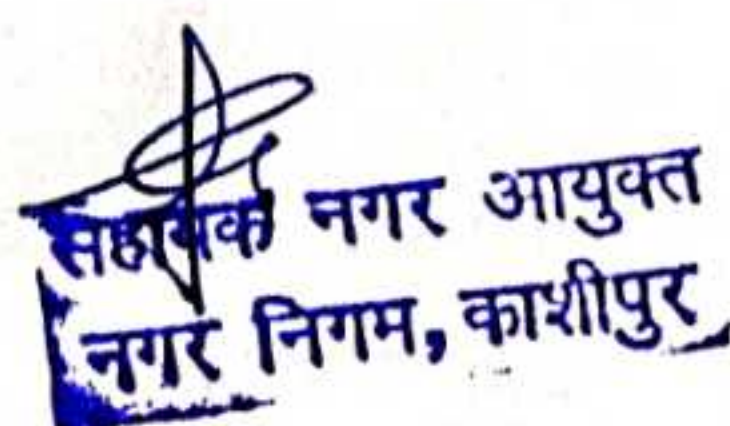 सहायक नगर आयुक्त
नगर निगम, काशीपुर